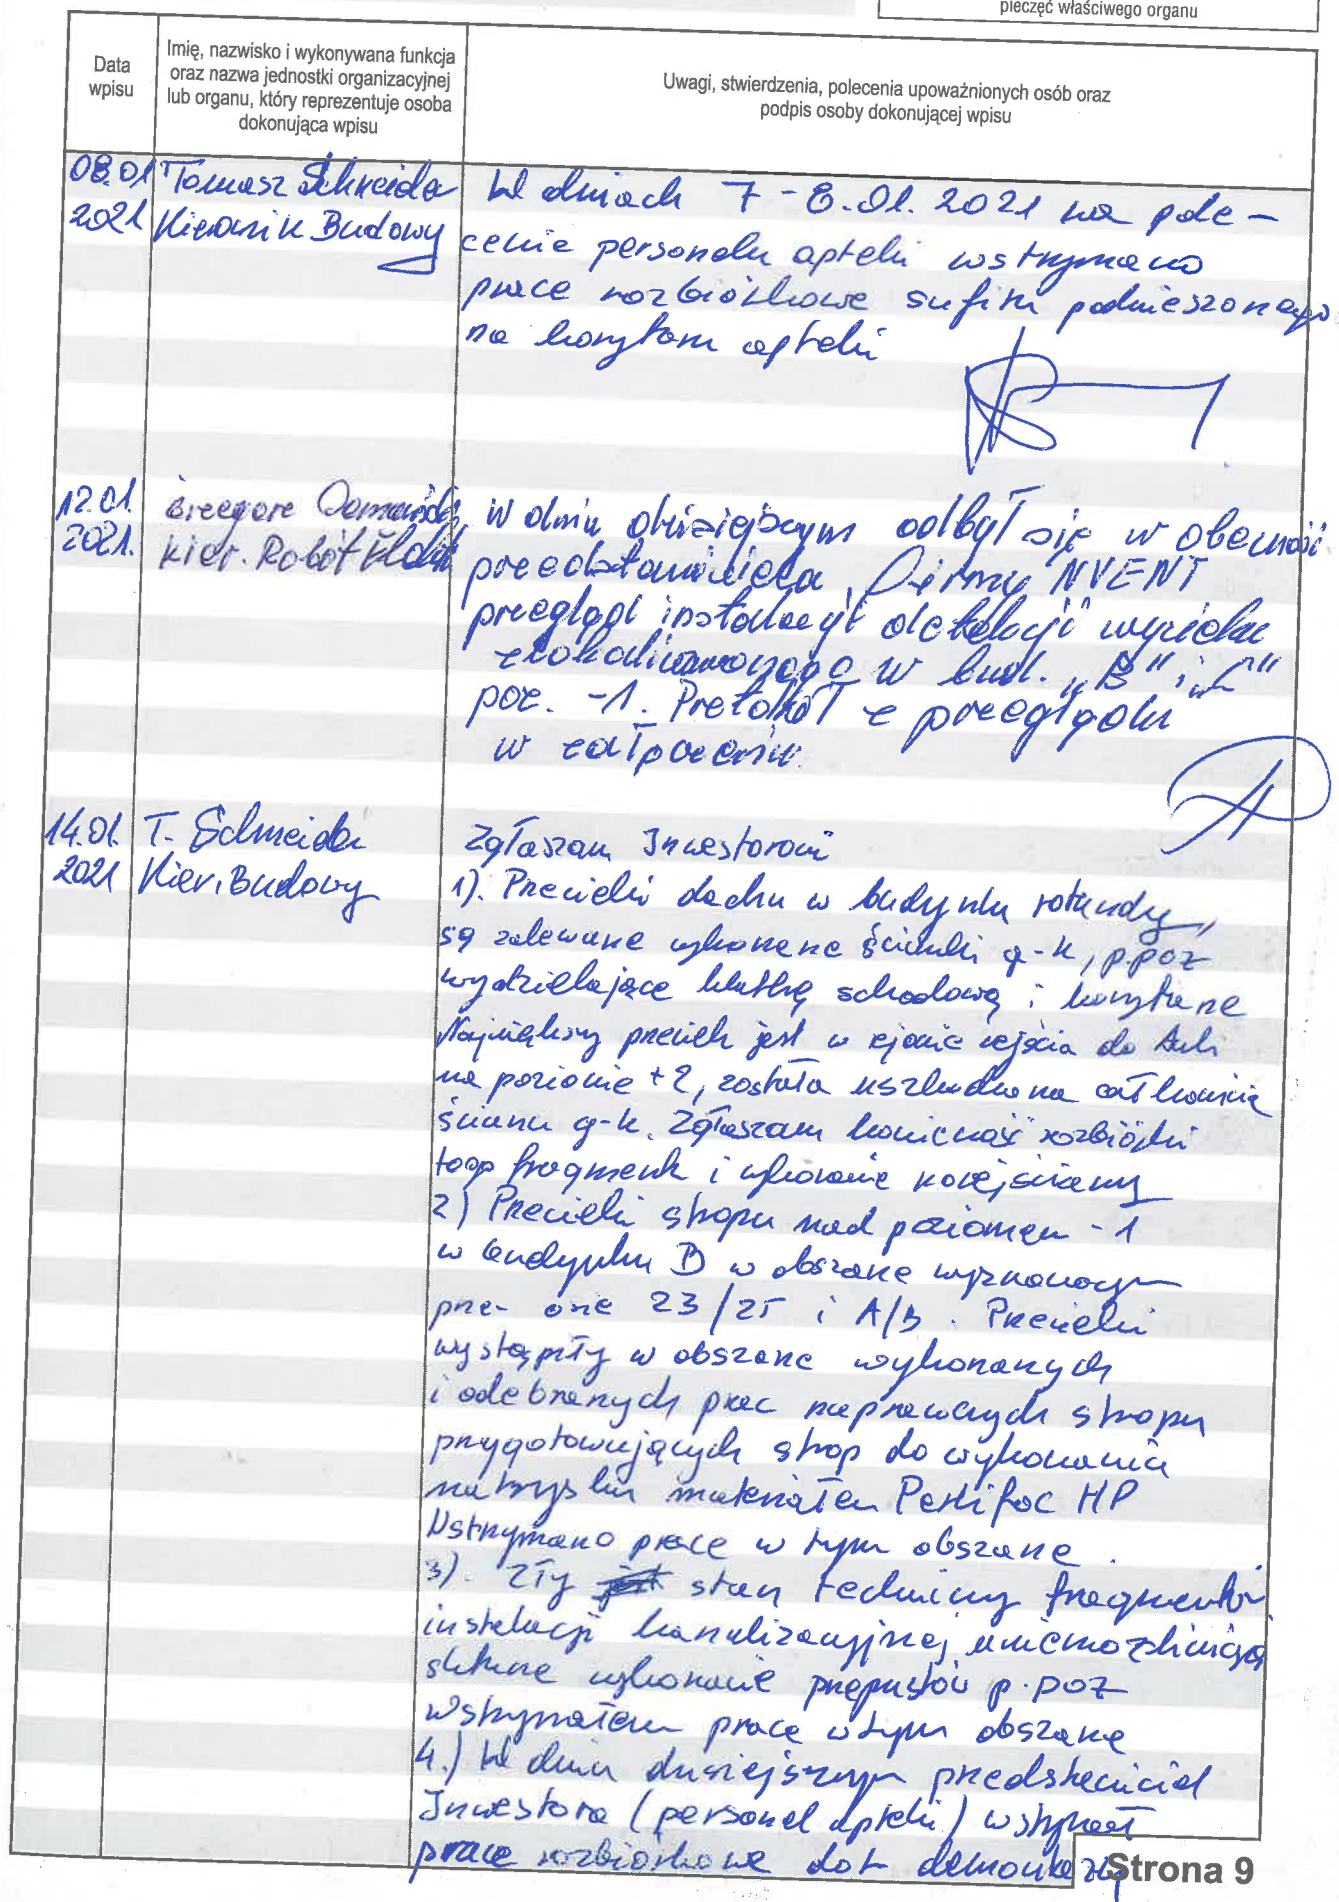 pieczęć właściwego organu
Data
wpisu
Imię, nazwisko i wykonywana funkcja
oraz nazwa jednostki organizacyjnej
lub organu, który reprezentuje osoba
dokonująca wpisu
Uwagi, stwierdzenia, polecenia upoważnionych osób oraz
podpis osoby dokonującej wpisu
08.01
2021
Tomasz Schneider
Kierownik Budowy
W dniach 7-8.01.2021 na pole-
cenie personelu apteki wstrzymano
prace rozbiórkowe sufitu podwieszonego
na korytarzu apteki
12.01.
2021.
Grzegorz
kier. Robót
W dniu dzisiejszym odbył się w obecności
przedstawiciela firmy NVENT
przegląd instalacji detekcji wycieku
zlokalizowanego w bud. „B" i „C"
poz. -1. Protokół z przeglądu
w załączeniu.
14.01.
2021
T. Schneider
Kier. Budowy
Zgłaszam Inwestorowi
1). Przecieki dachu w budynku rotundy,
są zalewane wykonane ścianki g-k, p.poż
wydzielające klatkę schodową i korytarze
Największy przeciek jest w rejonie wejścia do Auli
na poziomie +2, została uszkodzona całkowicie
ściana g-k. Zgłaszam konieczność rozbiórki
tego fragmentu i wykonanie nowej ściany
2) Przecieki stropu nad poziomem -1
w budynku B w obszarze wyznaczonym
prze- osie 23/25 i A/B. Przecieki
wystąpiły w obszarze wykonanych
i odebranych prac naprawczych stropu
przygotowujących strop do wykonania
natrysku materiałem Perlifoc HP
Wstrzymano prace w tym obszarze.
3). Zły stan techniczny fragmentów
instalacji kanalizacyjnej uniemożliwiają
skuteczne wykonanie przepustów p.poż
Wstrzymałem prace w tym obszarze
4.) W dniu dzisiejszym przedstawiciel
Inwestora (personel apteki) wstrzymał
prace rozbiórkowe dot. demontażu
Strona 9